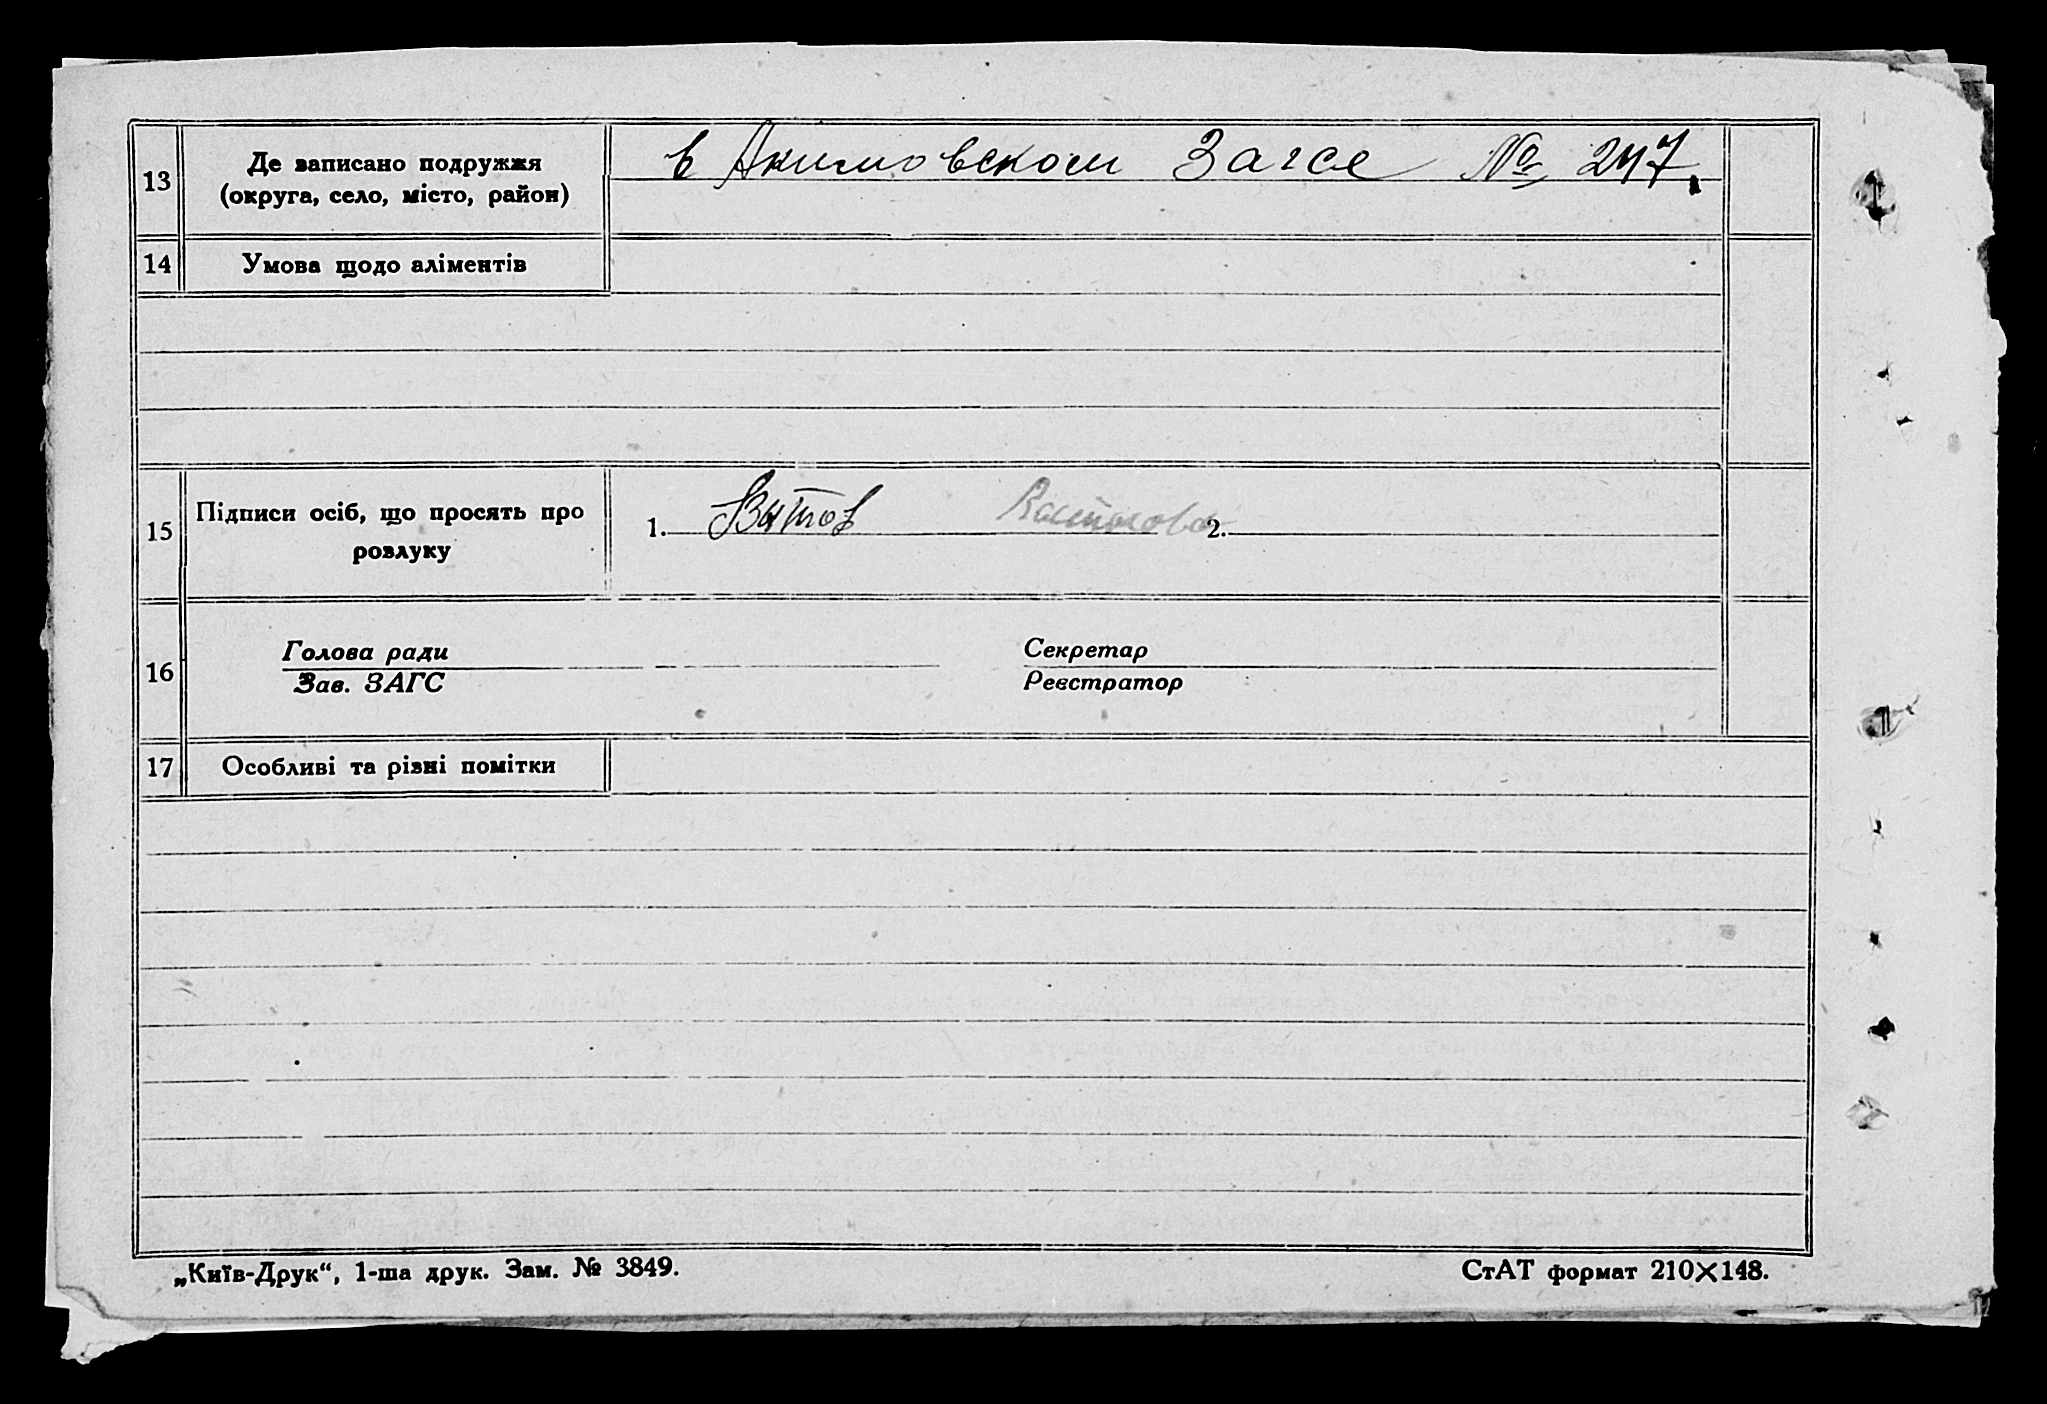 13
Де записано подружжя
(округа, село, місто, район)
в Акимовском Загсе № 247.
14
Умова щодо аліментів
15
Підписи осіб, що просять про
розлуку
1.
2.
16
Голова ради
Зав. ЗАГС
Секретар
Реєстратор
17
Особливі та різні помітки
„Київ-Друк“, 1-ша друк. Зам. № 3849.
СтАТ формат 210×148.